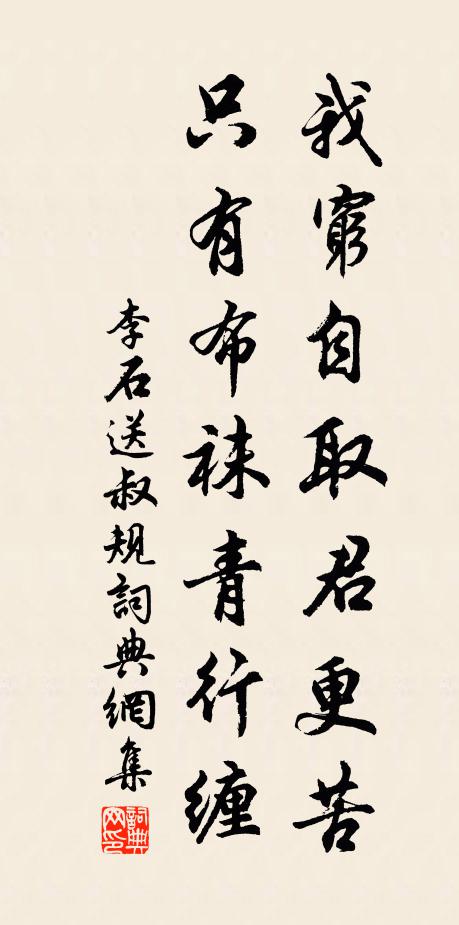 我窮自取君更苦
只有布袜青行缠
李石送叔规詞典網集
詞典网印